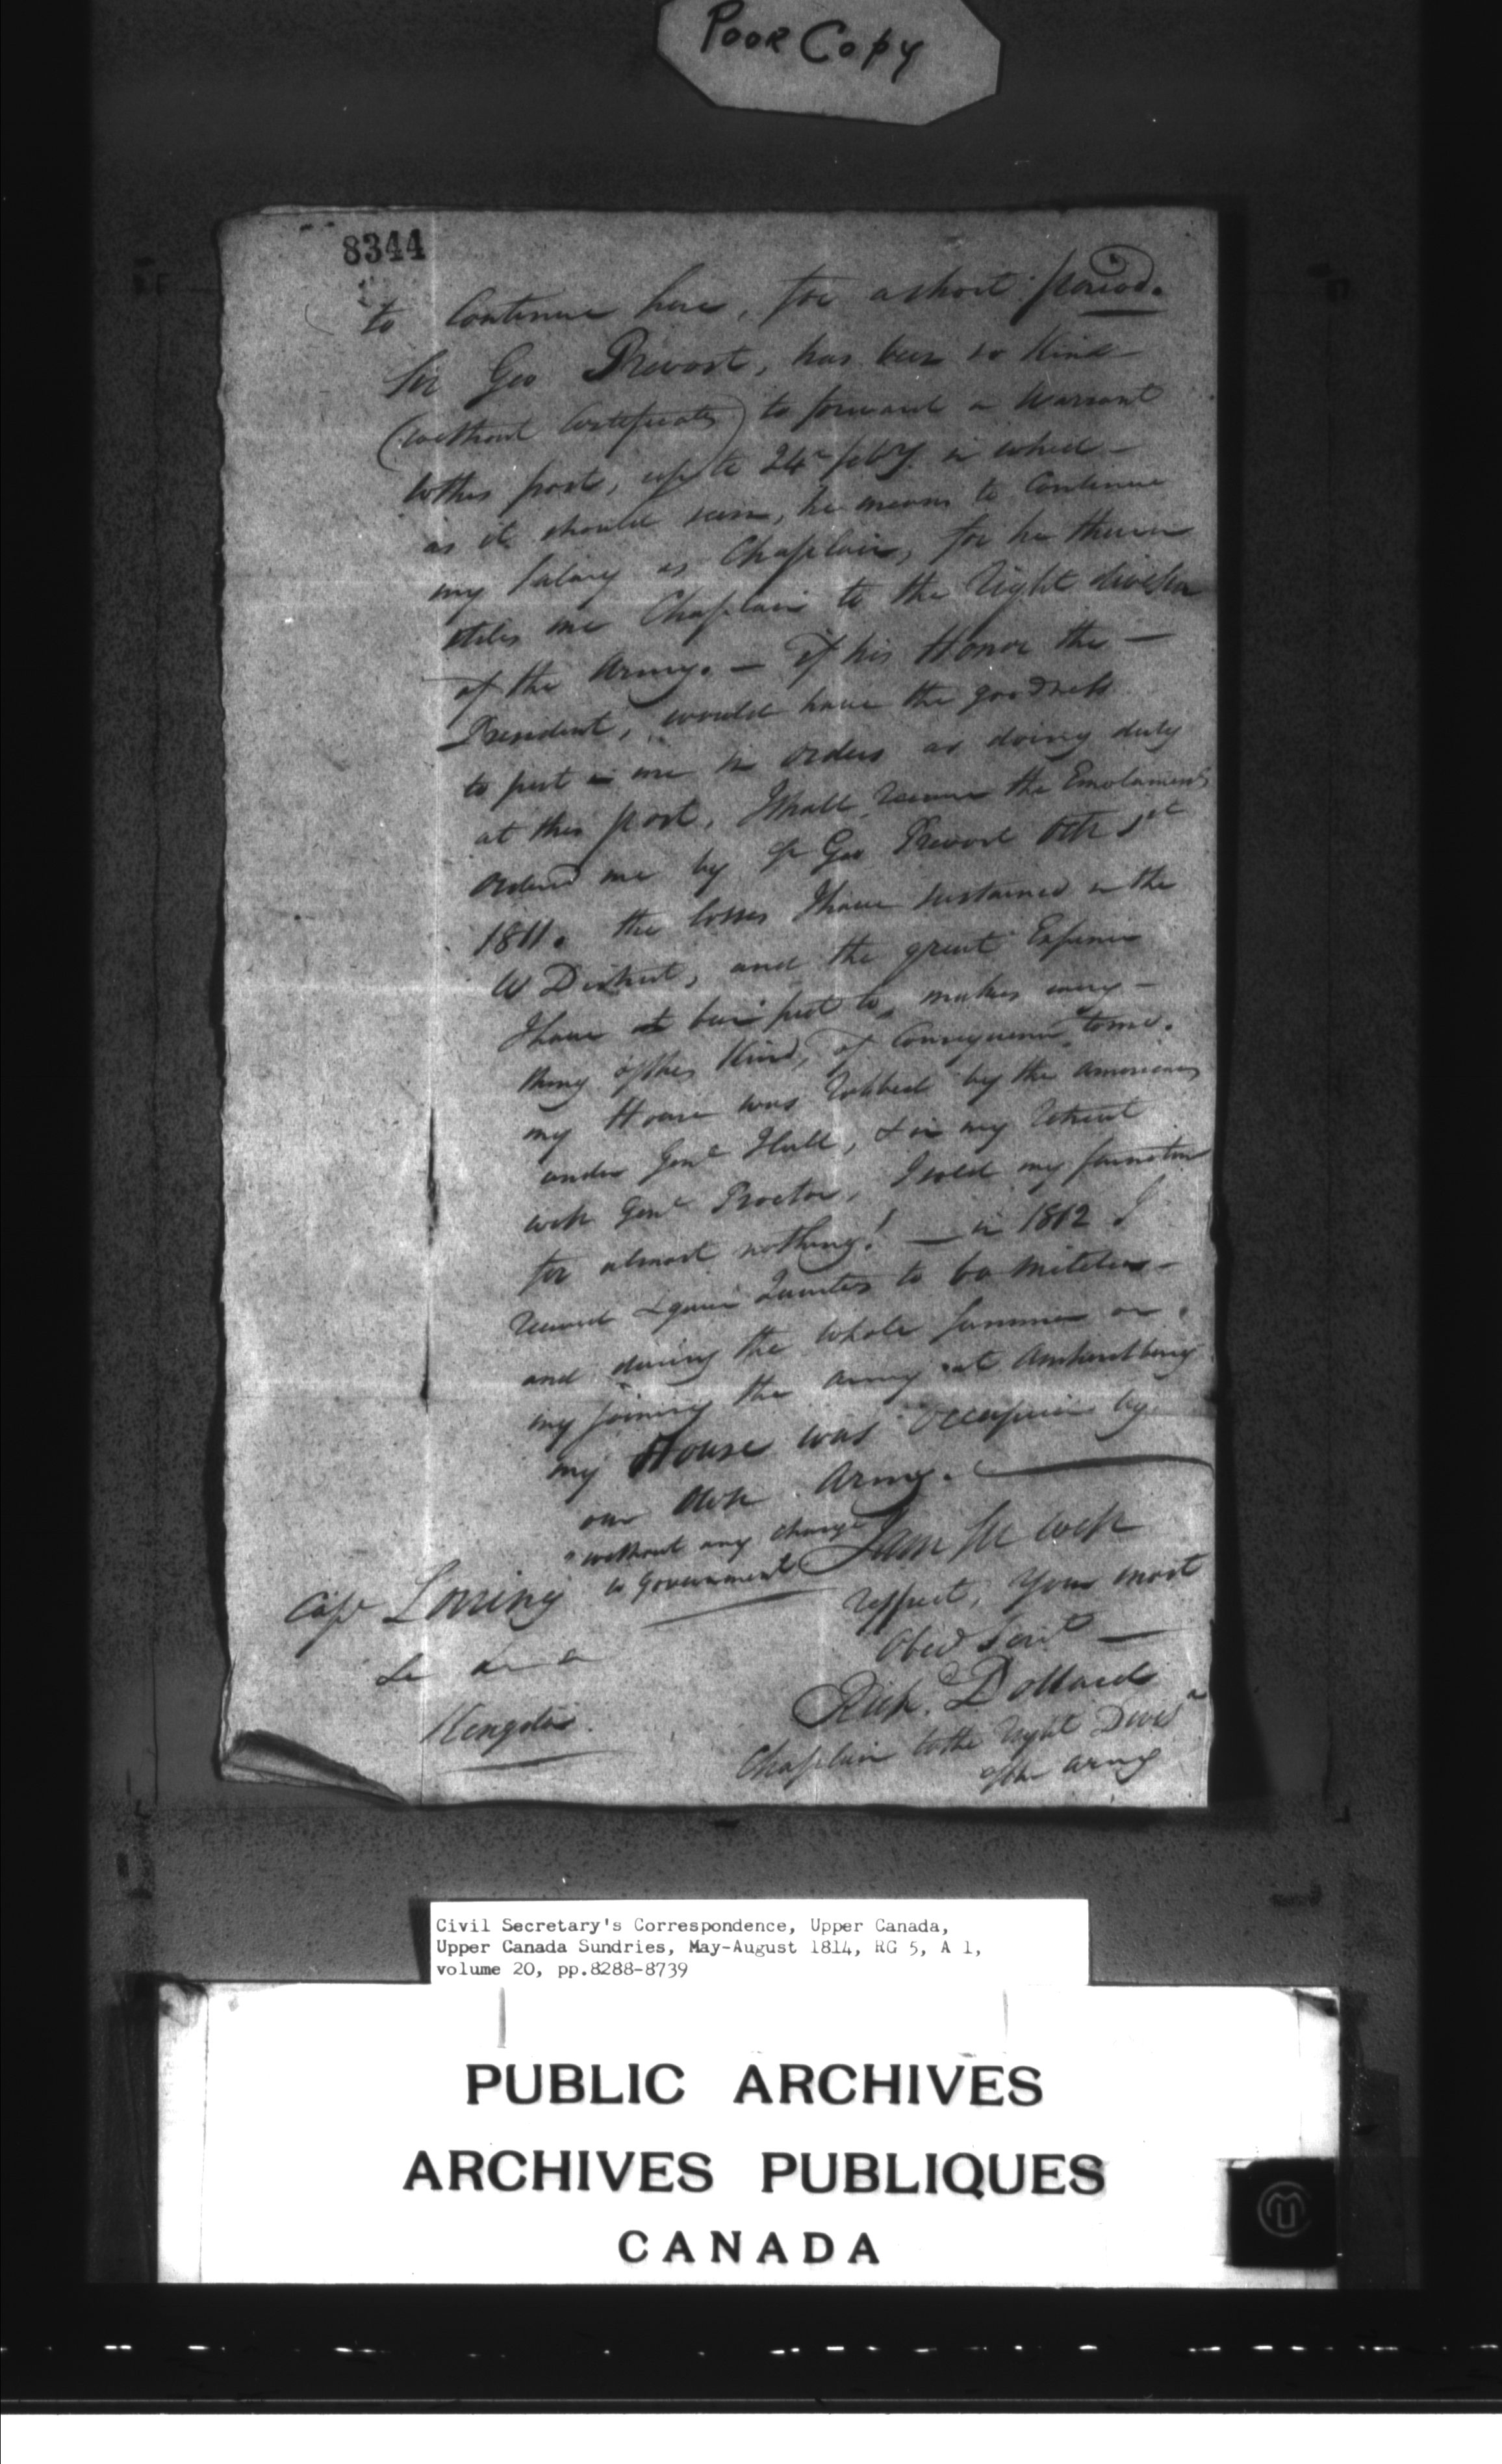 Poor Copy
8344
to Continue here, for a short period.
Sir Geo Prevost, has been so Kind
(without Certificates) to forward a Warrant
to this post, up to 24th feby in which
as it should seem, he means to Continue
my Salary as Chaplain, for he therein
stiles me Chaplain to the Right division
of the Army. — if his Honor the —
President, would have the goodness
to put me in orders as doing duty
at this post, I shall receive the Emolument
ordered me by Sr Geo Prevost Octr 1st
1811. the losses I have sustained in the
W District, and the great Expense
I have been put to, makes every —
thing of this Kind, of Consequence to me.
my House was robbed by the Americans
under Genl Hull, & in my retreat
with Genl Proctor, I sold my furniture
for almost nothing! — in 1812 I
and during the whole Summer on
my joining the army at Amherstburg
my House was Occupied by
our own Army.
without any charge
to Government
I am Sir with
respect, your most
Obed Servt
Capt Lorring
&c &c &c
Kingston.
Richd Pollard
Chaplain to the Right Divisn
of the Army
Civil Secretary's Correspondence, Upper Canada,
Upper Canada Sundries, May-August 1814, RG 5, A 1,
volume 20, pp.8288-8739
PUBLIC ARCHIVES
ARCHIVES PUBLIQUES
CANADA